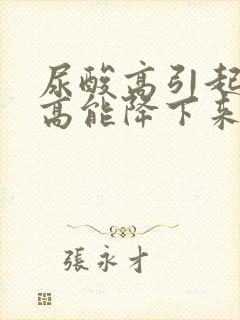 尿酸高引起
高能降下来
張永才